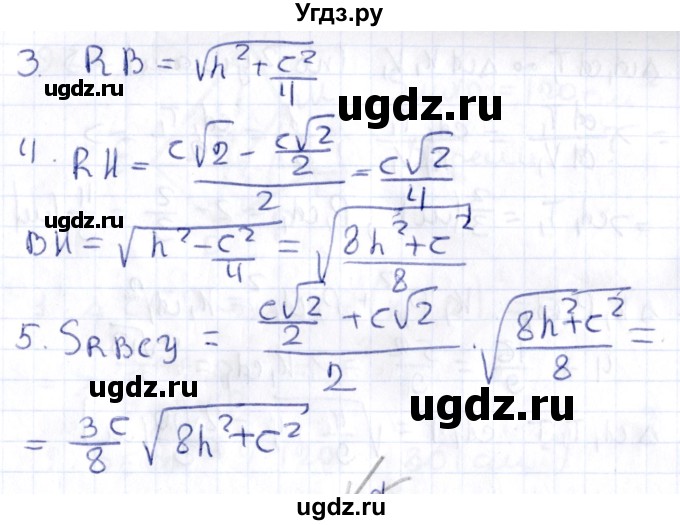 Угдз.ру
3. RB = √(h² + c²/4)
ugdz.ru
ugdz.ru
4. RH = (c√2 - c√2/2)/2 = c√2/4
ugdz.ru
BH = √(h² - c²/4) = √((8h² + c²)/8)
5. S RBCY = (c√2/2 + c√2)/2 · √((8h² + c²)/8) =
ugdz.ru
ugdz.ru
= 3c/8 √(8h² + c²)